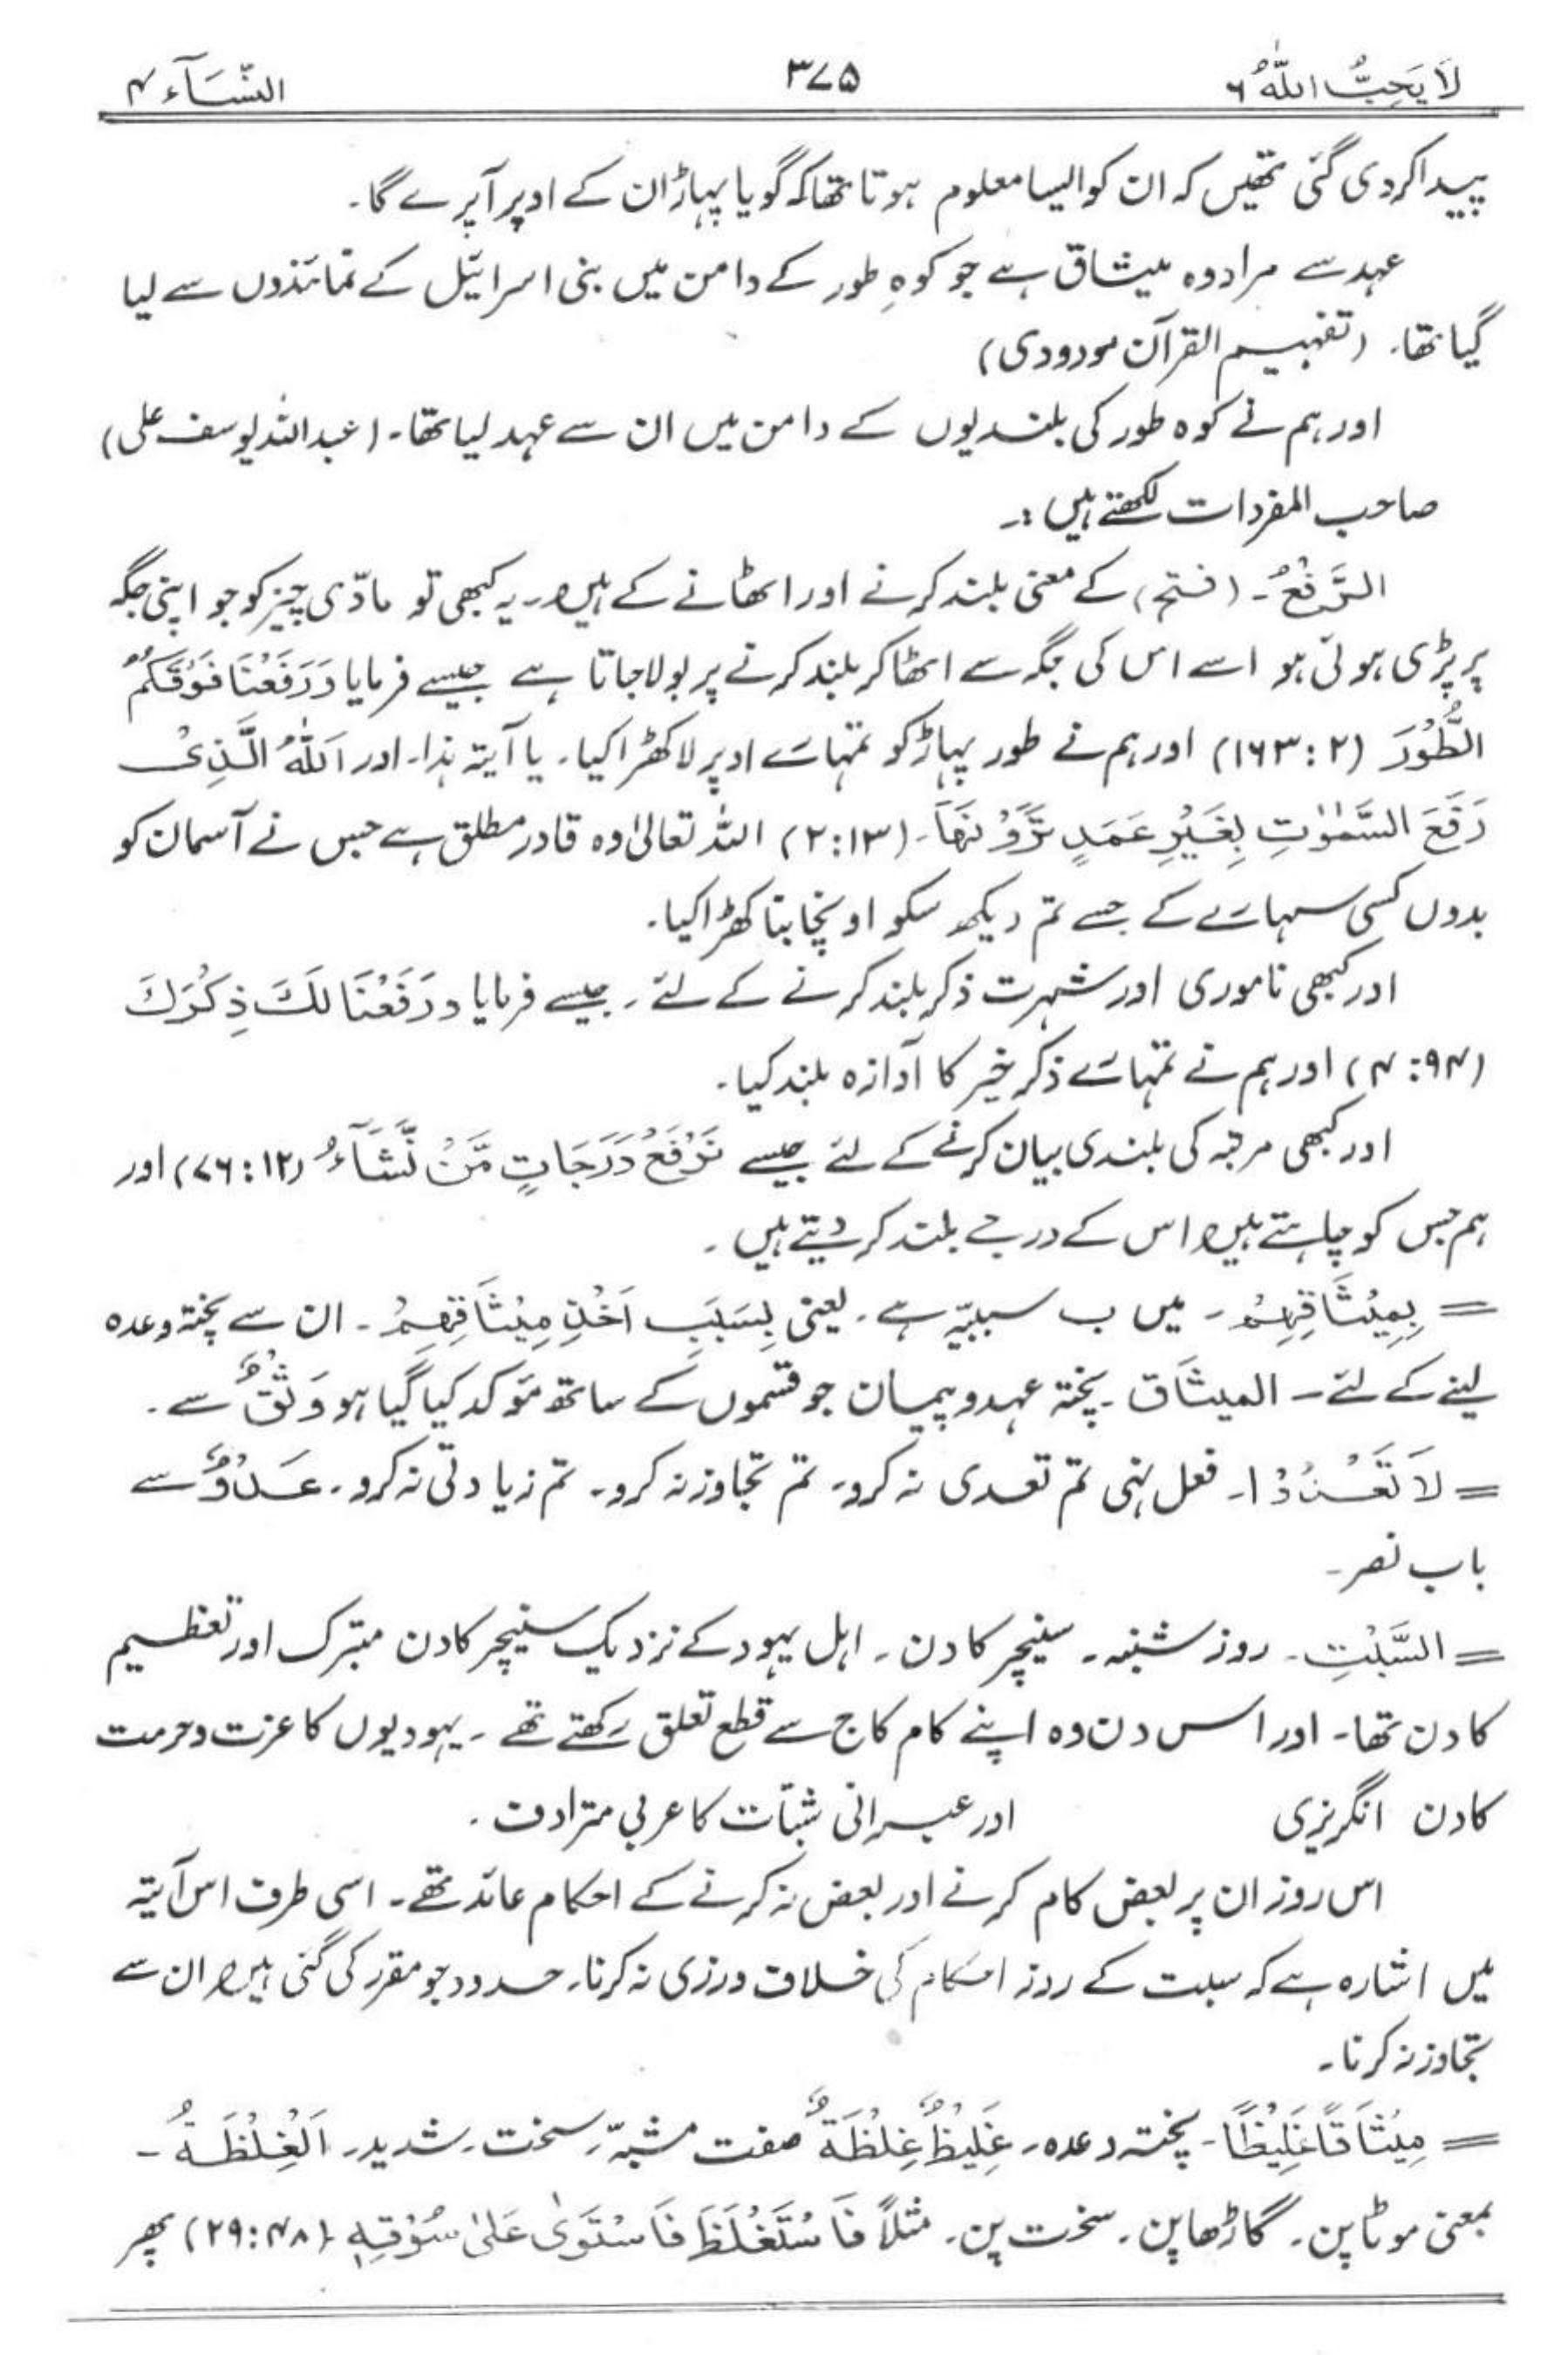 لَا یُحِبُّ اللّٰہُ ۶ ۳۷۵ النِّسَآء ۴
پیدا کر دی گئی تھیں کہ ان کو ایسا معلوم ہوتا تھا کہ گویا پہاڑ ان کے اوپر آپڑے گا۔
عہد سے مراد وہ میثاق ہے جو کوہِ طور کے دامن میں بنی اسرائیل کے نمائندوں سے لیا
گیا تھا۔ (تفہیم القرآن مودودی)
اور ہم نے کوہ طور کی بلندیوں کے دامن میں ان سے عہد لیا تھا۔ (عبداللہ یوسف علی)
صاحب المفردات لکھتے ہیں :۔
الرَّفْعُ۔ (فتح) کے معنی بلند کرنے اور اٹھانے کے ہیں۔ یہ کبھی تو مادّی چیز کو جو اپنی جگہ
پر پڑی ہوئی ہو اسے اس کی جگہ سے اٹھا کر بلند کرنے پر بولا جاتا ہے جیسے فرمایا وَرَفَعْنَا فَوْقَكُمُ
الطُّوْرَ (۲ : ۱۶۳) اور ہم نے طور پہاڑ کو تمہارے اوپر لا کھڑا کیا۔ یا آیۃ ہذا۔ اور اَللّٰہُ الَّذِیْ
رَفَعَ السَّمٰوٰتِ بِغَیْرِ عَمَدٍ تَرَوْنَهَا۔ (۱۳ : ۲) اللہ تعالیٰ وہ قادر مطلق ہے جس نے آسمان کو
بدوں کسی سہارے کے جسے تم دیکھ سکو اونچا بنا کھڑا کیا۔
اور کبھی ناموری اور شہرت ذکر بلند کرنے کے لئے۔ جیسے فرمایا ورَفَعْنَا لَكَ ذِكْرَكَ
(۹۴ : ۴) اور ہم نے تمہارے ذکر خیر کا آوازہ بلند کیا۔
اور کبھی مرتبہ کی بلندی بیان کرنے کے لئے جیسے نَرْفَعُ دَرَجَاتٍ مَّنْ نَّشَآءُ (۱۲ : ۷۶) اور
ہم جس کو چاہتے ہیں اس کے درجے بلند کر دیتے ہیں۔
= بِمِیْثَاقِهِمْ۔ میں ب سببیّہ ہے۔ یعنی بِسَبَبِ اَخْذِ مِیْثَاقِهِمْ۔ ان سے پختہ وعدہ
لینے کے لئے – المیثَاق۔ پختہ عہد و پیمان جو قسموں کے ساتھ مؤکد کیا گیا ہو وَثْقٌ سے۔
= لَا تَعْدُوْا۔ فعل نہی تم تعدی نہ کرو۔ تم تجاوز نہ کرو۔ تم زیادتی نہ کرو۔ عَدْوٌ سے
باب نصر۔
= السَّبْتِ۔ روز شنبہ۔ سنیچر کا دن۔ اہل یہود کے نزدیک سنیچر کا دن متبرک اور تعظیم
کا دن تھا۔ اور اس دن وہ اپنے کام کاج سے قطع تعلق رکھتے تھے۔ یہودیوں کا عزت و حرمت
کا دن انگریزی اور عبرانی شَبَّات کا عربی مترادف۔
اس روز ان پر بعض کام کرنے اور بعض نہ کرنے کے احکام عائد تھے۔ اسی طرف اس آیۃ
میں اشارہ ہے کہ سبت کے روز احکام کی خلاف ورزی نہ کرنا۔ حدود جو مقرر کی گئی ہیں ان سے
تجاوز نہ کرنا۔
= مِیْثَاقًا غَلِیْظًا۔ پختہ وعدہ۔ غَلِیْظٌ غِلْظَةٌ صفت مشبّہ۔ سخت۔ شدید۔ اَلْغِلْظَةُ –
بمعنی موٹا پن۔ گاڑھا پن۔ سخت پن۔ مثلاً فَاسْتَغْلَظَ فَاسْتَوٰی عَلٰی سُوْقِهٖ (۴۸ : ۲۹) پھر